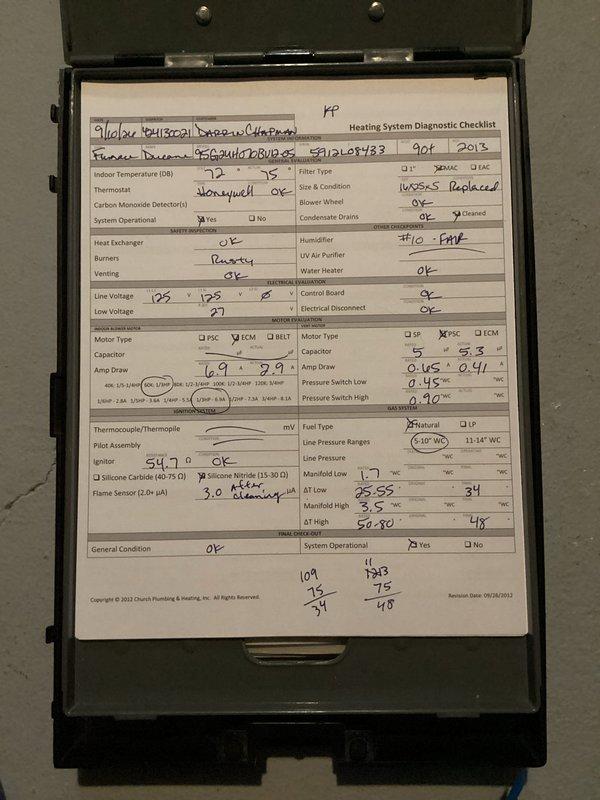 KP
Heating System Diagnostic Checklist
DATE DISPATCH CUSTOMER
9/10/24 424130021 DARRIN CHAPMAN
SYSTEM INFORMATION
Furnace Ducane 95G2UH070BV12-05 5912L08433 90+ 2013
GENERAL EVALUATION
Indoor Temperature (DB) 72 ° 75 °
Thermostat Honeywell OK
Carbon Monoxide Detector(s)
System Operational ☒ Yes ☐ No
Filter Type ☐ 1" ☒ MAC ☐ EAC
Size & Condition 16x25x5 Replaced
Blower Wheel OK
Condensate Drains OK ☒ Cleaned
SAFETY INSPECTION
Heat Exchanger OK
Burners Rusty
Venting OK
OTHER CHECKPOINTS
Humidifier #10 - FAIR
UV Air Purifier
Water Heater OK
ELECTRICAL EVALUATION
Line Voltage 125 V 125 V Ø V
Low Voltage 27 V
Control Board OK
Electrical Disconnect OK
MOTOR EVALUATION
INDOOR BLOWER MOTOR
Motor Type ☐ PSC ☒ ECM ☐ BELT
Capacitor µF µF
Amp Draw 6.9 A 2.9 A
40K: 1/5-1/4HP 60K: 1/3HP 80K: 1/2-3/4HP 100K: 1/2-3/4HP 120K: 3/4HP
1/6HP - 2.8A 1/5HP - 3.6A 1/4HP - 5.5A 1/3HP - 6.9A 1/2HP - 7.3A 3/4HP - 8.1A
VENT MOTOR
Motor Type ☐ SP ☒ PSC ☐ ECM
Capacitor 5 µF 5.3 µF
Amp Draw 0.65 A 0.41 A
Pressure Switch Low 0.45 "WC
Pressure Switch High 0.90 "WC
IGNITION SYSTEM
Thermocouple/Thermopile mV
Pilot Assembly
Ignitor 54.7 Ω OK
☐ Silicone Carbide (40-75 Ω) ☒ Silicone Nitride (15-30 Ω)
Flame Sensor (2.0+ µA) 3.0 After cleaning µA
GAS SYSTEM
Fuel Type ☒ Natural ☐ LP
Line Pressure Ranges 5-10" WC 11-14" WC
Line Pressure "WC "WC
Manifold Low 1.7 "WC "WC "WC
ΔT Low 25-55 ° ° 34 °
Manifold High 3.5 "WC "WC "WC
ΔT High 50-80 ° ° 48 °
FINAL CHECK-OUT
General Condition OK
System Operational ☒ Yes ☐ No
109
75
34
11
123
75
48
Copyright © 2012 Church Plumbing & Heating, Inc. All Rights Reserved.
Revision Date: 09/28/2012